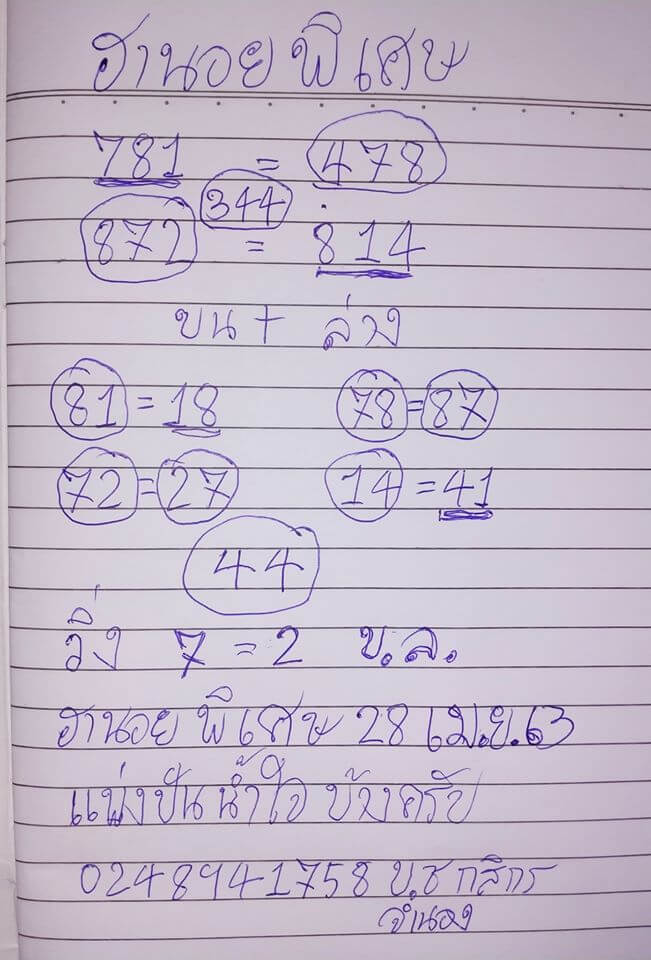 ฮานอย พิเศษ
781 = 478
344
872 = 814
บน + ล่าง
81 = 18 78 = 87
72 = 27 14 = 41
44
วิ่ง 7 = 2 บ.ล.
ฮานอย พิเศษ 28 เม.ย.63
แบ่งปัน น้ำใจ บ้างครับ
0248941758 บ.ช กสิกร
จำนอง